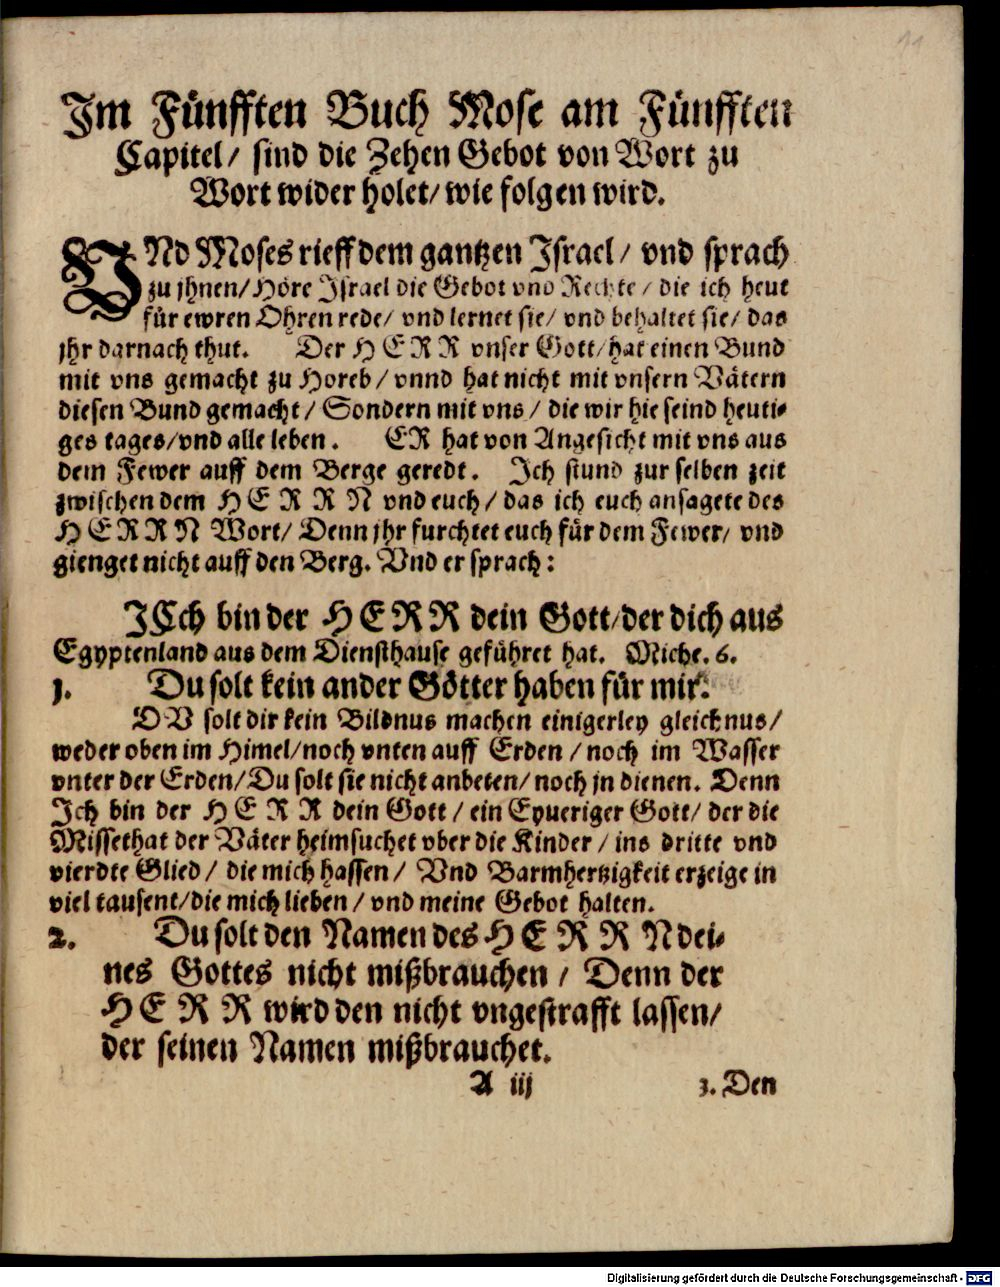 11
Im Fünfften Buch Mose am Fünfften
Capitel/ sind die Zehen Gebot von Wort zu
Wort wider holet/ wie folgen wird.
VNd Moses rieff dem gantzen Israel/ vnd sprach
zu jhnen/ Höre Israel die Gebot vnd Rechte/ die ich heut
für ewren Ohren rede/ vnd lernet sie/ vnd behaltet sie/ das
jhr darnach thut. Der HERR vnser Gott/ hat einen Bund
mit vns gemacht zu Horeb/ vnnd hat nicht mit vnsern Vätern
diesen Bund gemacht/ Sondern mit vns/ die wir hie seind heuti-
ges tages/ vnd alle leben. ER hat von Angesicht mit vns aus
dem Fewer auff dem Berge geredt. Ich stund zur selben zeit
zwischen dem HERRN vnd euch/ das ich euch ansagete des
HERRN Wort/ Denn jhr furchtet euch für dem Fewer/ vnd
gienget nicht auff den Berg. Vnd er sprach:
ICch bin der HERR dein Gott/ der dich aus
Egyptenland aus dem Diensthause geführet hat. Miche. 6.
1. Du solt kein ander Götter haben für mir.
DV solt dir kein Bildnus machen einigerley gleichnus/
weder oben im Himel/ noch vnten auff Erden/ noch im Wasser
vnter der Erden/ Du solt sie nicht anbeten/ noch jn dienen. Denn
Ich bin der HERR dein Gott/ ein Eyueriger Gott/ der die
Missethat der Väter heimsuchet vber die Kinder/ ins dritte vnd
vierdte Glied/ die mich hassen/ Vnd Barmhertzigkeit erzeige in
viel tausent/ die mich lieben/ vnd meine Gebot halten.
2. Du solt den Namen des HERRN dei-
nes Gottes nicht mißbrauchen/ Denn der
HERR wird den nicht vngestrafft lassen/
der seinen Namen mißbrauchet.
A iij 3. Den
Digitalisierung gefördert durch die Deutsche Forschungsgemeinschaft - DFG